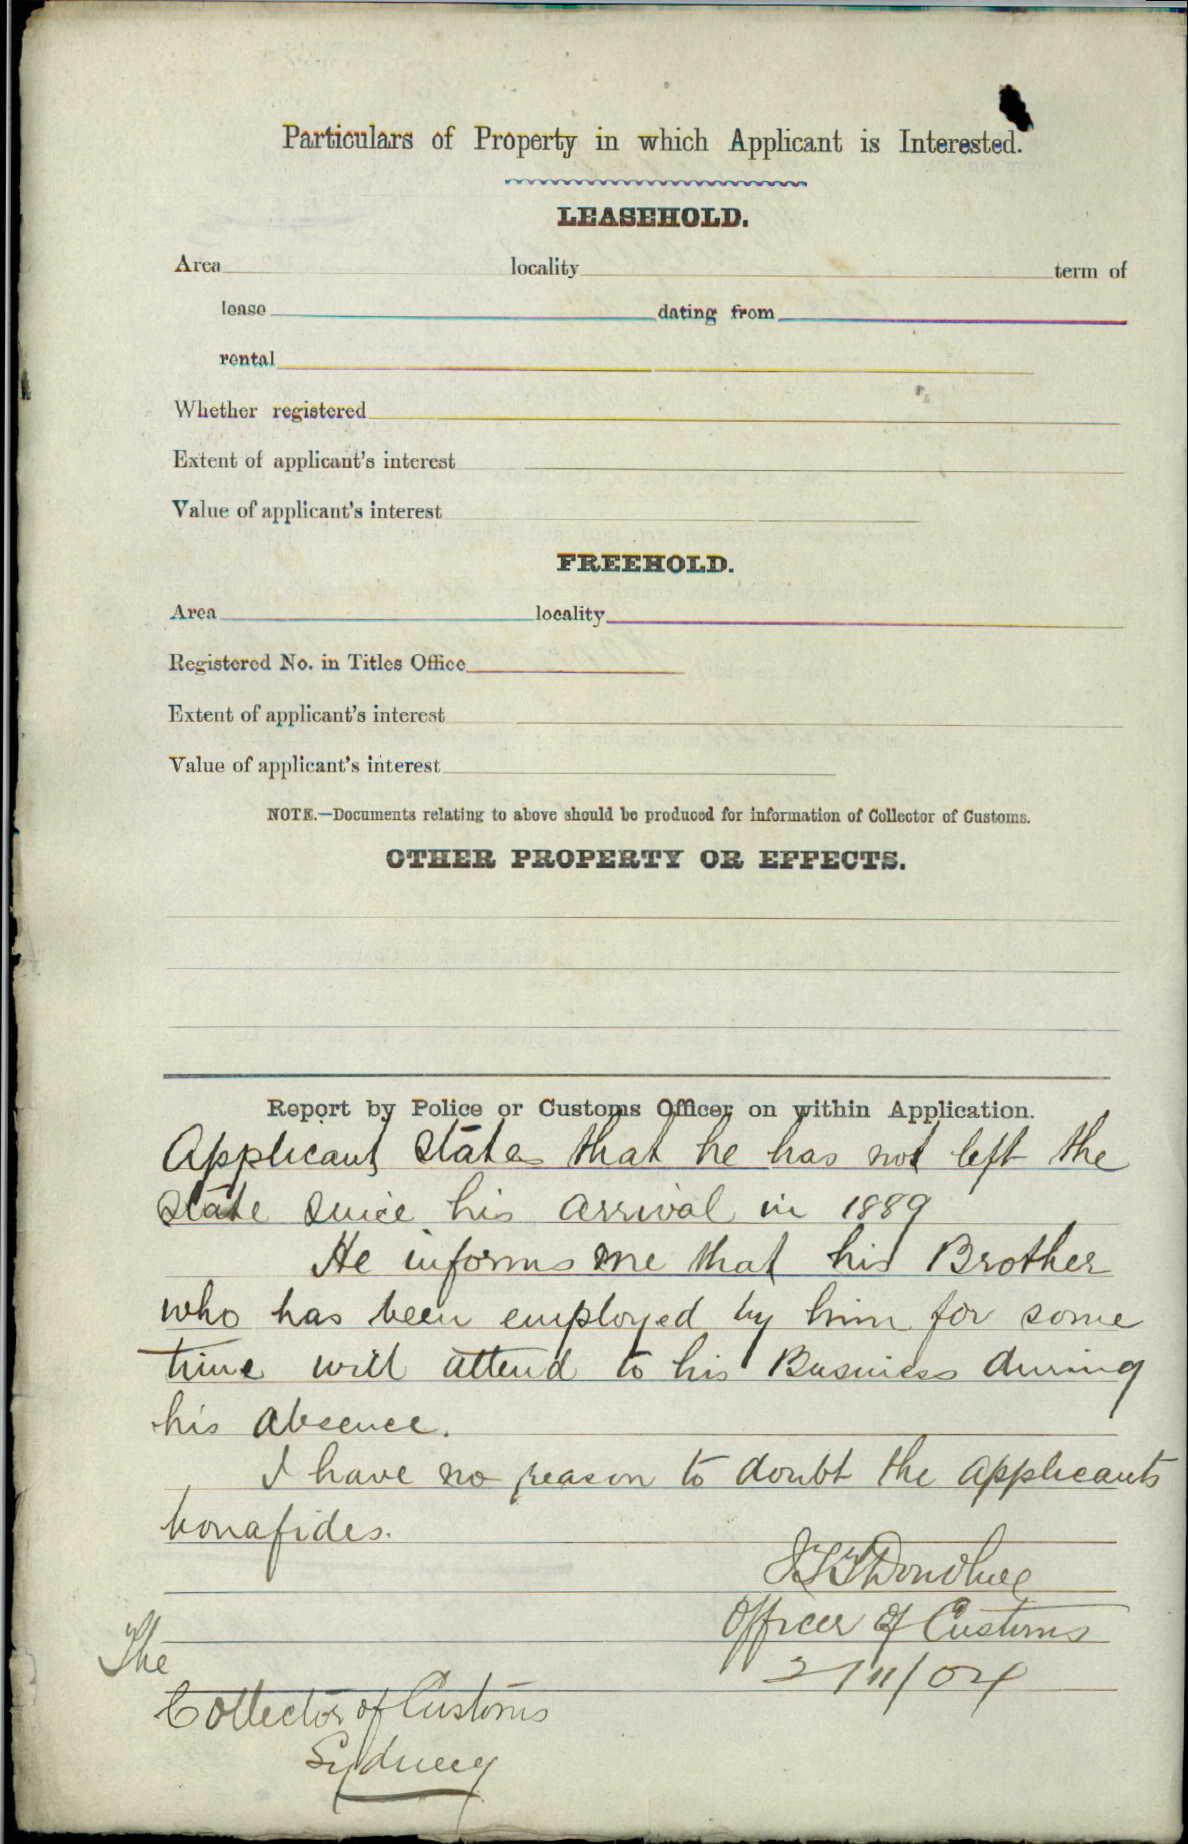 Particulars of Property in which Applicant is Interested.
LEASEHOLD.
Area locality term of
lease dating from
rental
Whether registered
Extent of applicant's interest
Value of applicant's interest
FREEHOLD.
Area locality
Registered No. in Titles Office
Extent of applicant's interest
Value of applicant's interest
NOTE.—Documents relating to above should be produced for information of Collector of Customs.
OTHER PROPERTY OR EFFECTS.
Report by Police or Customs Officer on within Application.
Applicant states that he has not left the
state since his arrival in 1889
He informs me that his Brother
who has been employed by him for some
time will attend to his Business during
his absence.
I have no reason to doubt the applicants
bonafides.
Donohue
Officer of Customs
2/11/04
The
Collector of Customs
Sydney